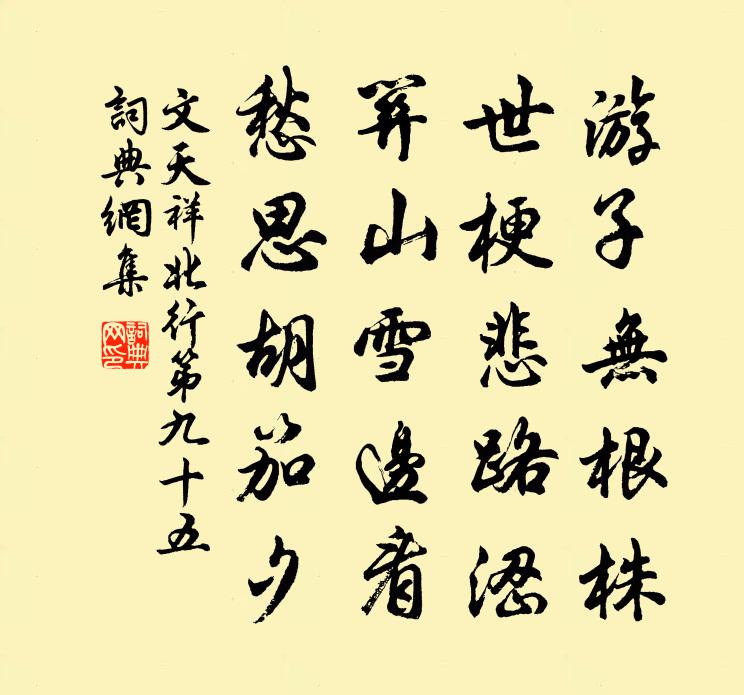 游子無根株
世梗悲路澀
關山雪邊看
愁思胡笳夕
文天祥北行第九十五
詞典網集
詞典網印